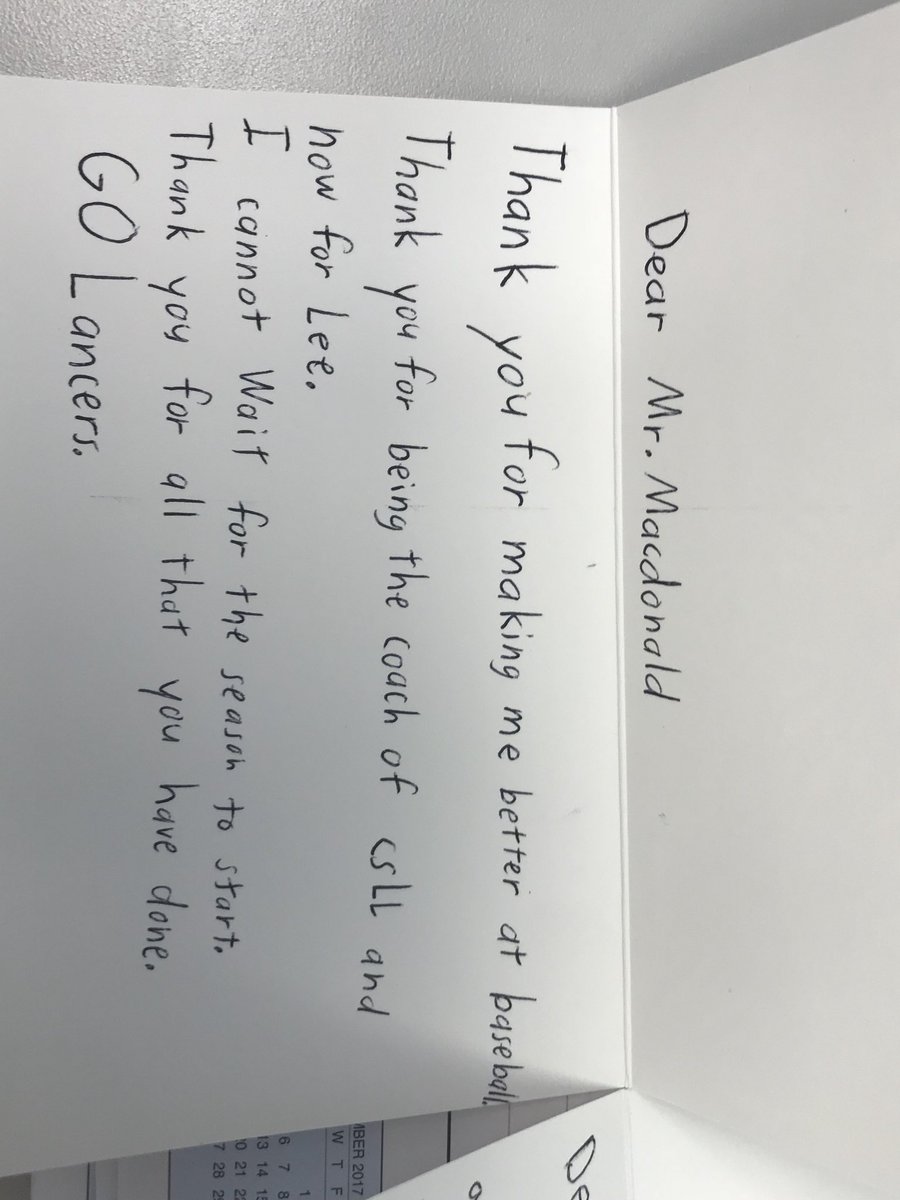 Dear Mr. Macdonald
Thank you for making me better at baseball.
Thank you for being the coach of csLL and
now for Lee.
I cannot Wait for the season to start.
Thank you for all that you have done.
GO Lancers.
De
MBER 2017
W T F
1
6 7 8
13 14 15
20 21 22
7 28 29